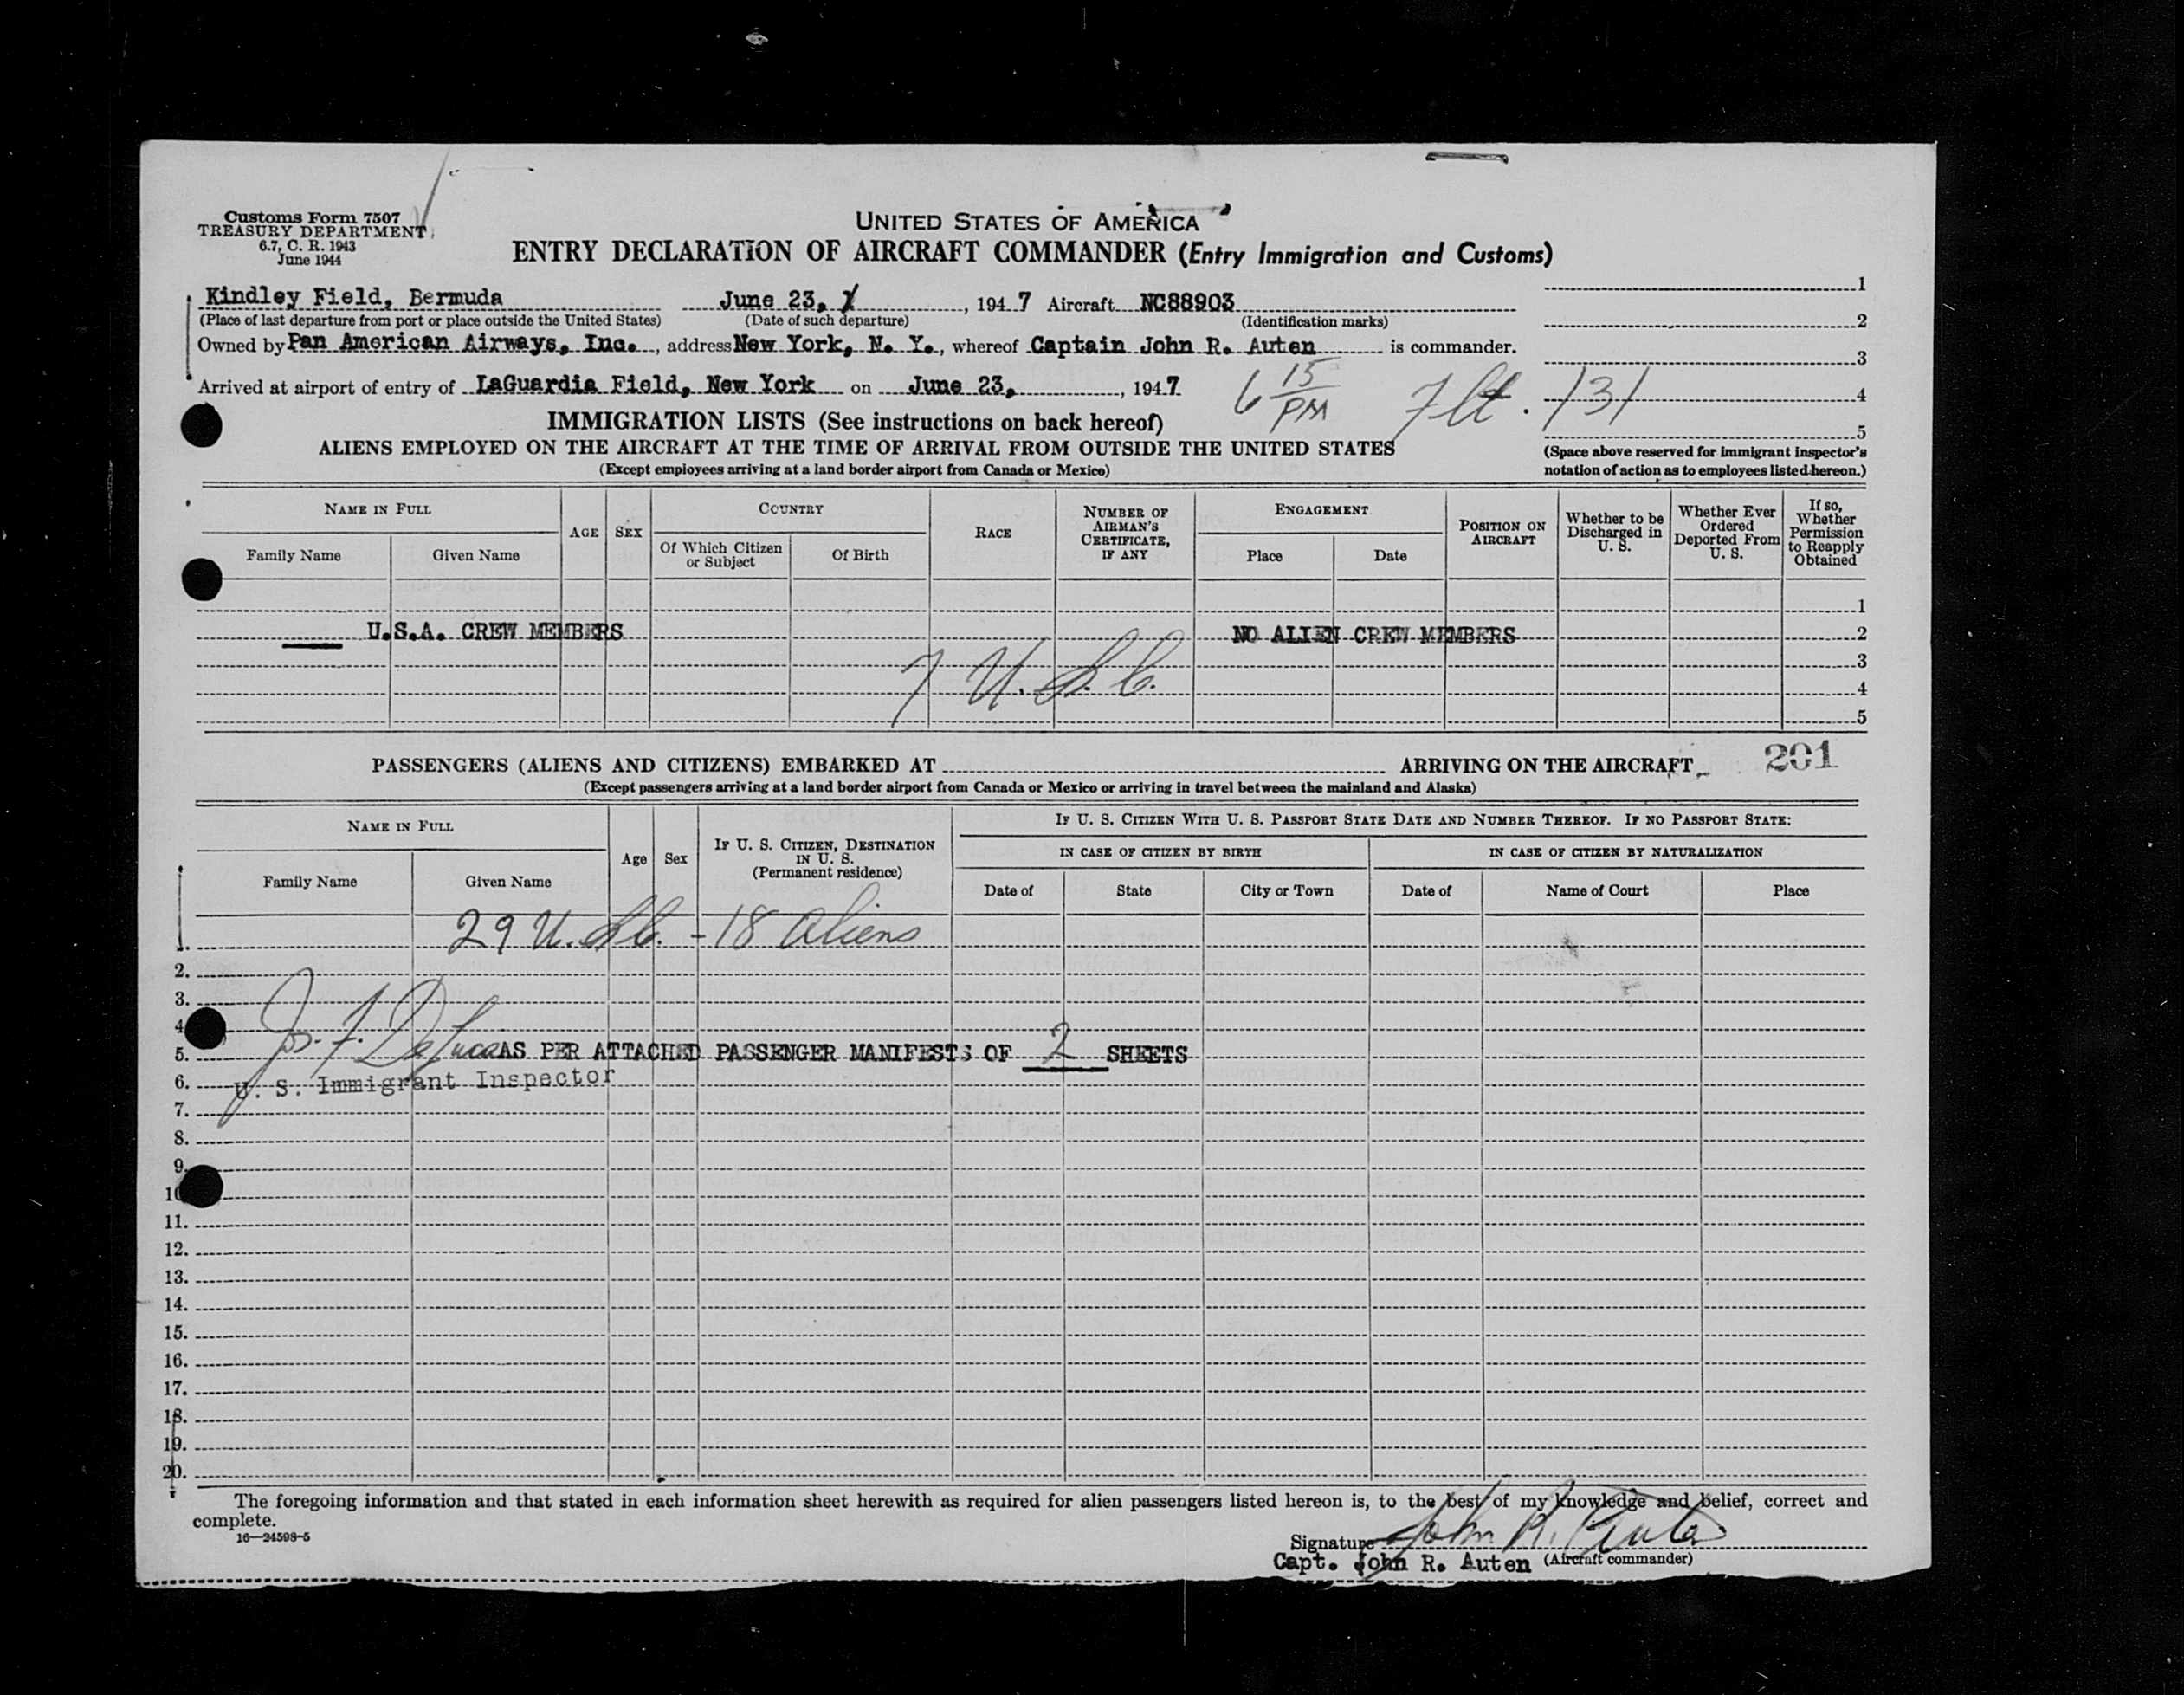 Customs Form 7507
TREASURY DEPARTMENT
6.7, C. R. 1943
June 1944
UNITED STATES OF AMERICA
ENTRY DECLARATION OF AIRCRAFT COMMANDER (Entry Immigration and Customs)
Kindley Field, Bermuda June 23, , 1947 Aircraft NC88903
(Place of last departure from port or place outside the United States) (Date of such departure) (Identification marks)
Owned by Pan American Airways, Inc. , address New York, N. Y. , whereof Captain John R. Auten is commander.
Arrived at airport of entry of LaGuardia Field, New York on June 23, , 1947
6 15 PM Flt. 131
1
2
3
4
5
(Space above reserved for immigrant inspector's
notation of action as to employees listed hereon.)
IMMIGRATION LISTS (See instructions on back hereof)
ALIENS EMPLOYED ON THE AIRCRAFT AT THE TIME OF ARRIVAL FROM OUTSIDE THE UNITED STATES
(Except employees arriving at a land border airport from Canada or Mexico)
NAME IN FULL
Family Name
Given Name
AGE
SEX
COUNTRY
Of Which Citizen
or Subject
Of Birth
RACE
NUMBER OF
AIRMAN'S
CERTIFICATE,
IF ANY
ENGAGEMENT
Place
Date
POSITION ON
AIRCRAFT
Whether to be
Discharged in
U. S.
Whether Ever
Ordered
Deported From
U. S.
If so,
Whether
Permission
to Reapply
Obtained
1
U.S.A. CREW MEMBERS NO ALIEN CREW MEMBERS 2
3
7 U.S.C. 4
5
PASSENGERS (ALIENS AND CITIZENS) EMBARKED AT ARRIVING ON THE AIRCRAFT 201
(Except passengers arriving at a land border airport from Canada or Mexico or arriving in travel between the mainland and Alaska)
NAME IN FULL
Family Name
Given Name
Age
Sex
IF U. S. CITIZEN, DESTINATION
IN U. S.
(Permanent residence)
IF U. S. CITIZEN WITH U. S. PASSPORT STATE DATE AND NUMBER THEREOF. IF NO PASSPORT STATE:
IN CASE OF CITIZEN BY BIRTH
Date of
State
City or Town
IN CASE OF CITIZEN BY NATURALIZATION
Date of
Name of Court
Place
1. 29 U.S.C. - 18 Aliens
2.
3.
4. Jos. F. DeLuca
5. AS PER ATTACHED PASSENGER MANIFESTS OF 2 SHEETS
6. U. S. Immigrant Inspector
7.
8.
9.
10
11.
12.
13.
14.
15.
16.
17.
18.
19.
20.
The foregoing information and that stated in each information sheet herewith as required for alien passengers listed hereon is, to the best of my knowledge and belief, correct and
complete.
16—24598-5
Signature John R. Auten
Capt. John R. Auten (Aircraft commander)